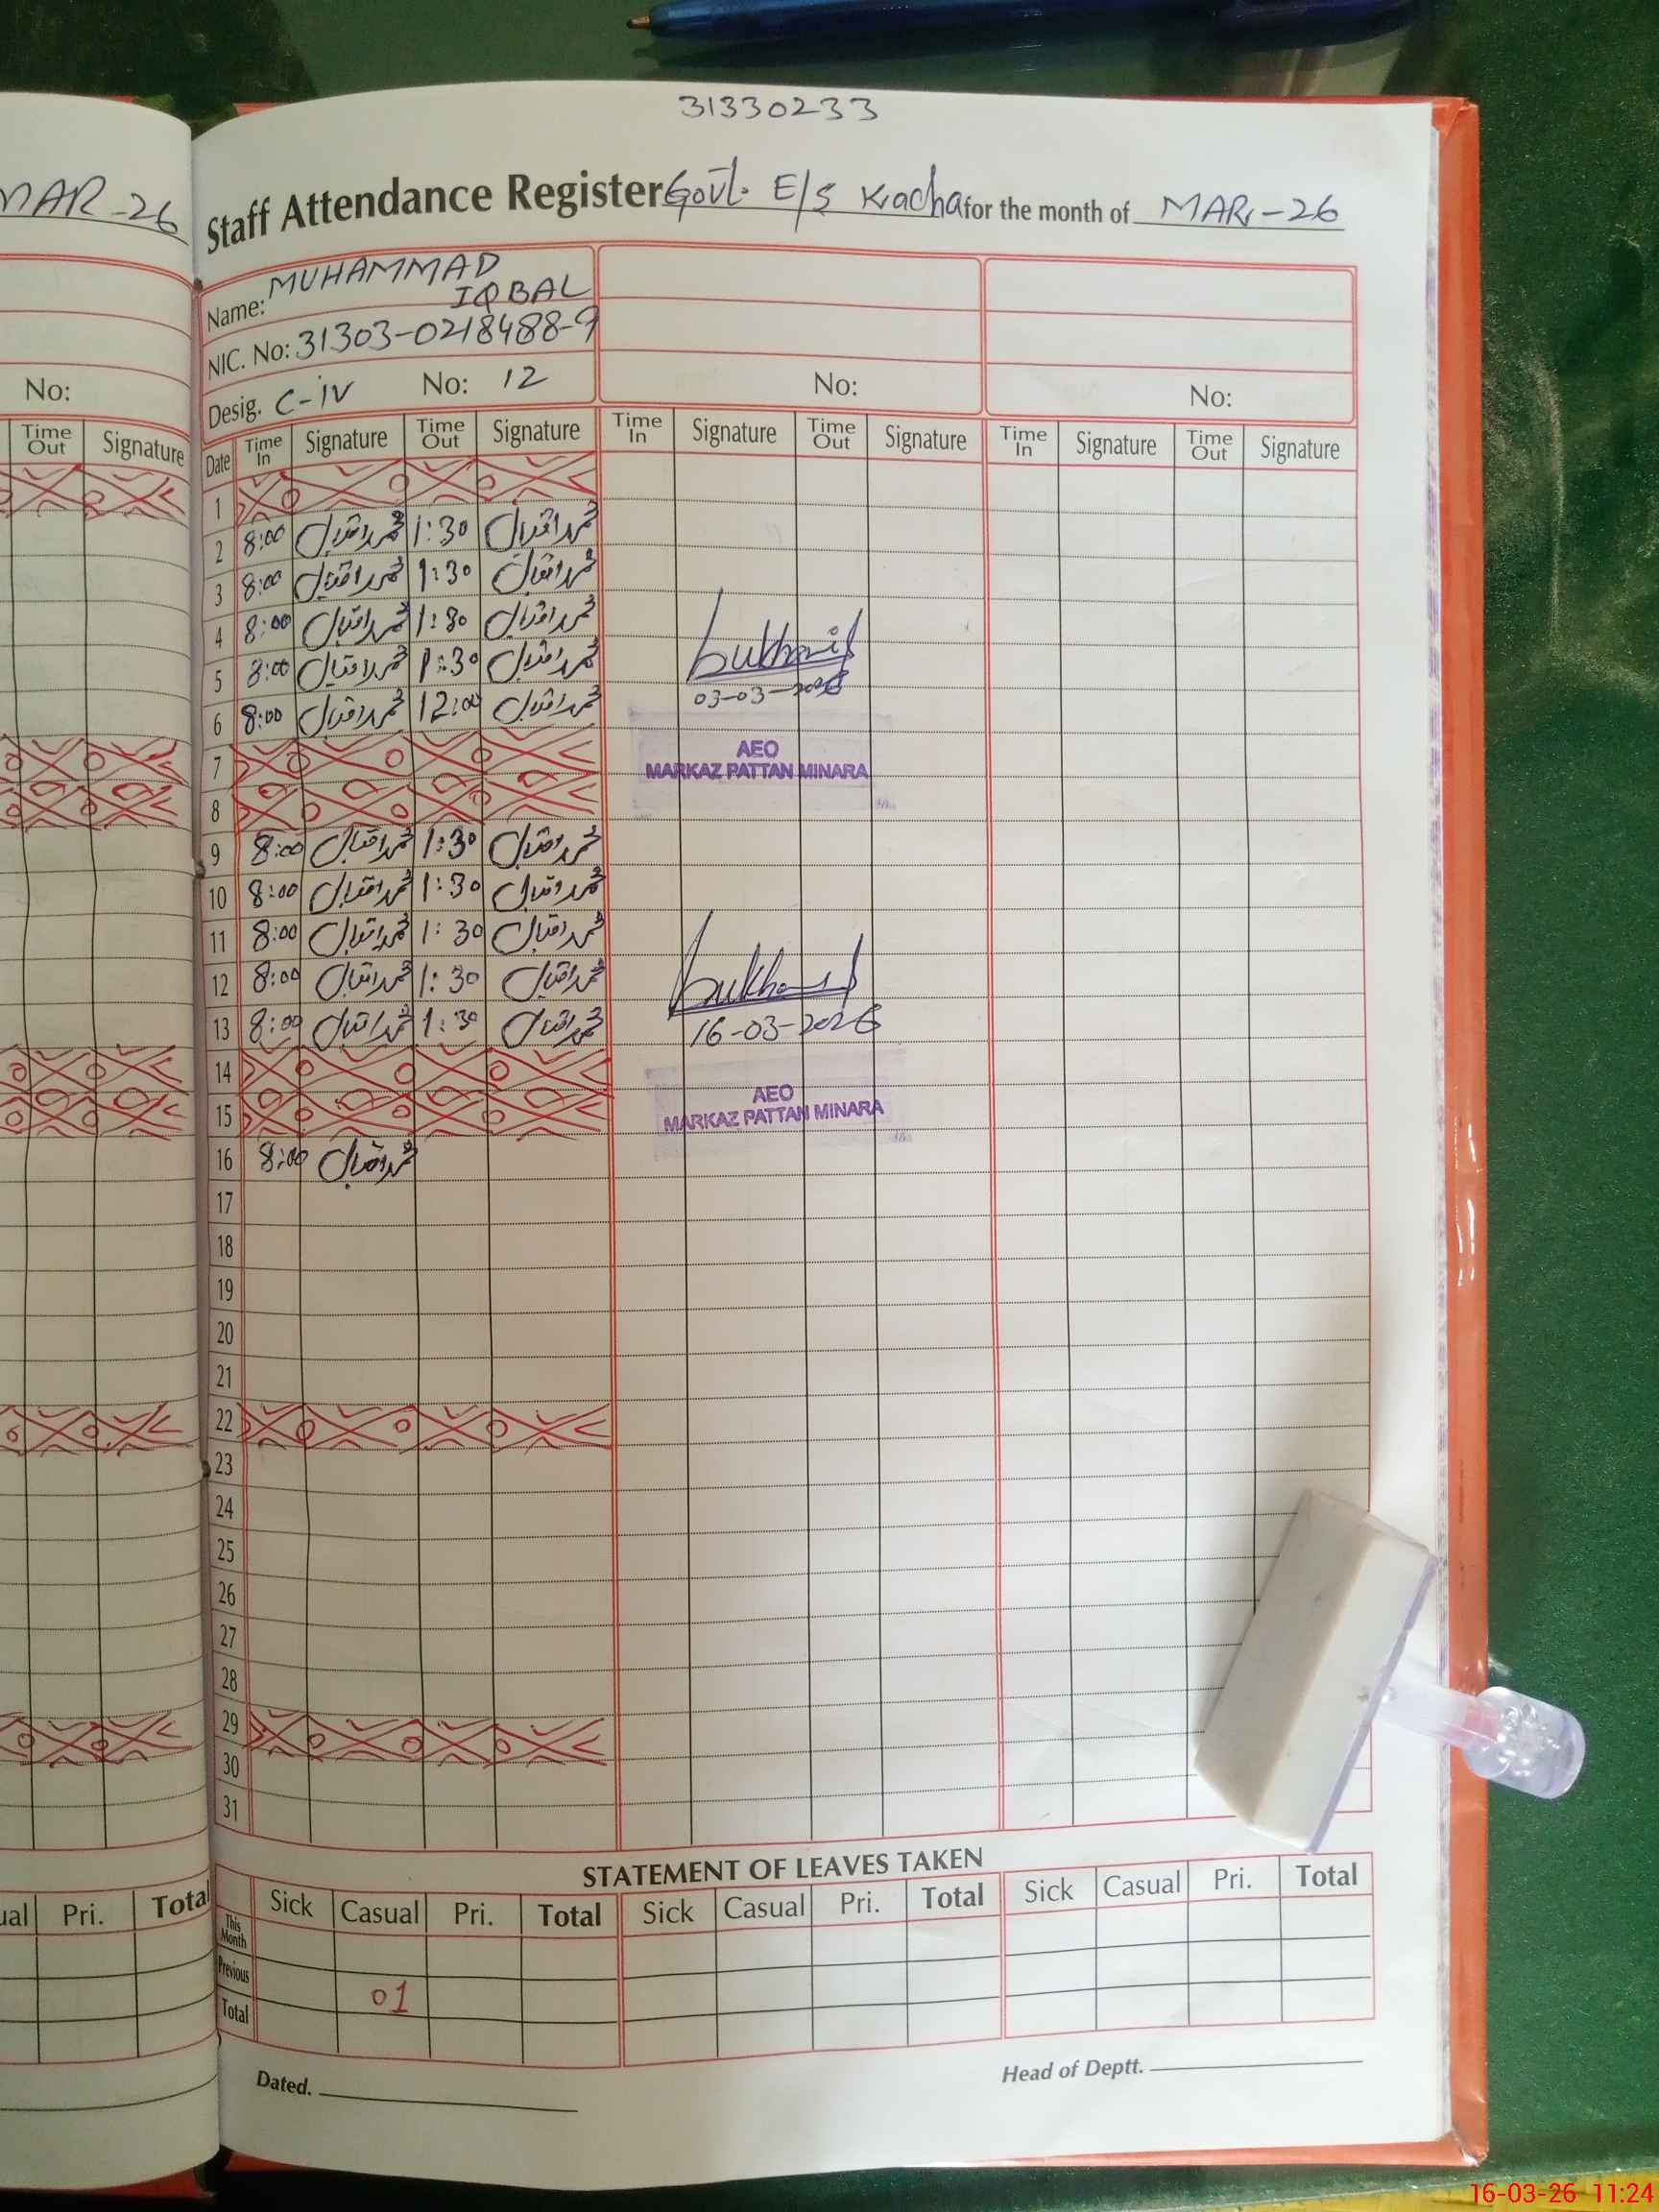 31330233
MAR-26
Staff Attendance Register Govt. E/S Kracha for the month of MAR-26
Name: MUHAMMAD IQBAL
NIC. No: 31303-0218488-9
No:
Desig. C-iv No: 12
No:
No:
Time Out Signature
Date Time In Signature Time Out Signature Time In Signature Time Out Signature Time In Signature Time Out Signature
1
2 8:00 محمد اقبال 1:30 محمد اقبال
3 8:00 محمد اقبال 1:30 محمد اقبال
4 8:00 محمد اقبال 1:30 محمد اقبال
5 8:00 محمد اقبال 1:30 محمد اقبال
6 8:00 محمد اقبال 12:00 محمد اقبال
bukhari
03-03-2026
7
AEO
MARKAZ PATTAN MINARA
8
9 8:00 محمد اقبال 1:30 محمد اقبال
10 8:00 محمد اقبال 1:30 محمد اقبال
11 8:00 محمد اقبال 1:30 محمد اقبال
12 8:00 محمد اقبال 1:30 محمد اقبال
bukhari
13 8:00 محمد اقبال 1:30 محمد اقبال
16-03-2026
14
15
AEO
MARKAZ PATTAN MINARA
16 8:00 محمد اقبال
17
18
19
20
21
22
23
24
25
26
27
28
29
30
31
STATEMENT OF LEAVES TAKEN
Pri. Total
Sick Casual Pri. Total Sick Casual Pri. Total Sick Casual Pri. Total
This Month
Previous 01
Total
Dated.
Head of Deptt.
16-03-26 11:24